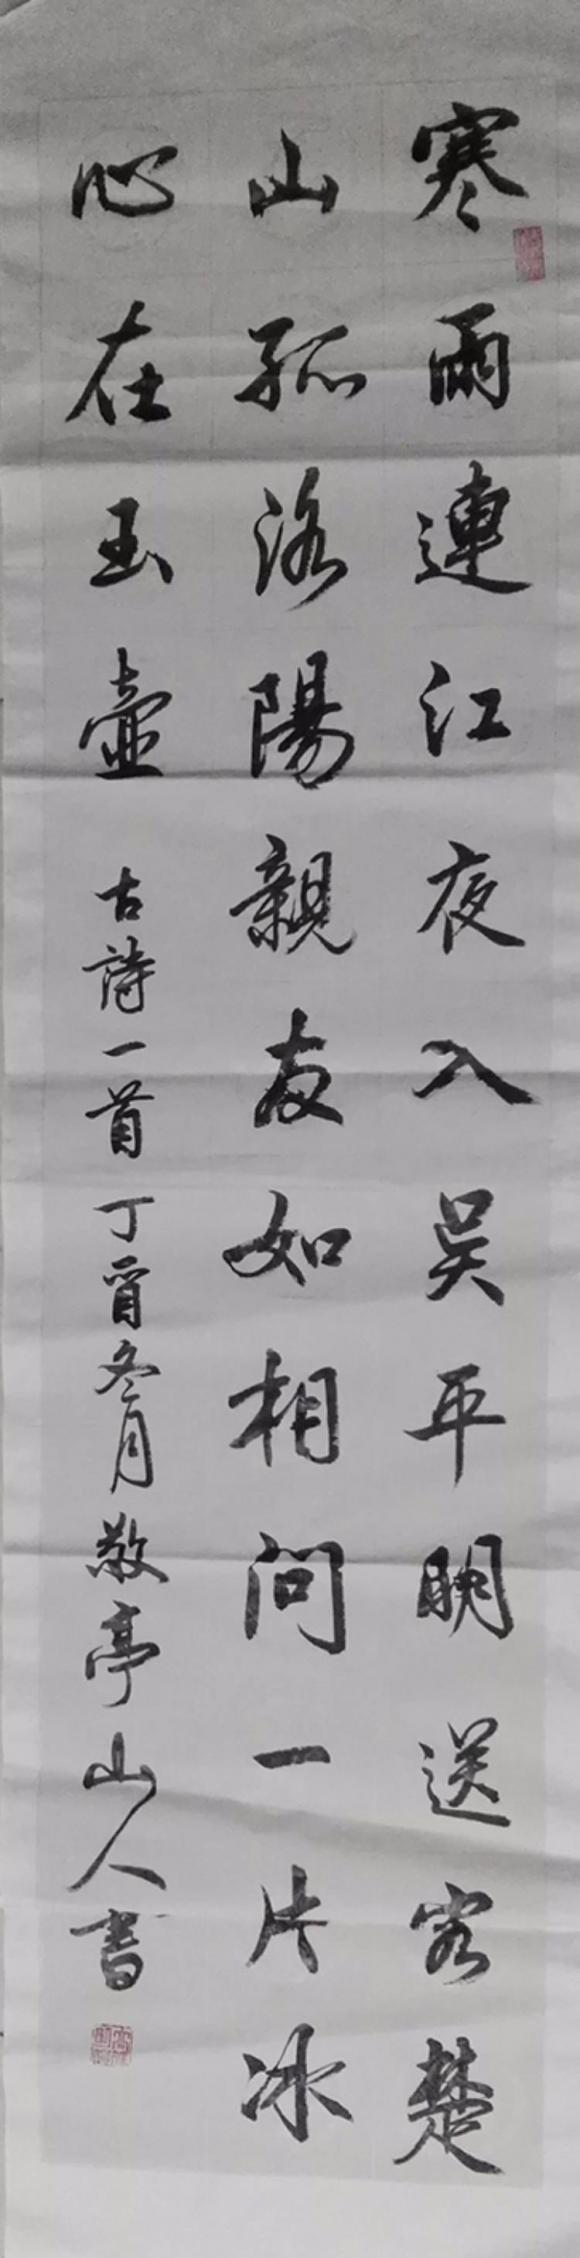 寒雨連江夜入吴平明送客楚
山孤洛陽親友如相問一片冰
心在玉壺
古詩一首丁酉冬月敬亭山人書